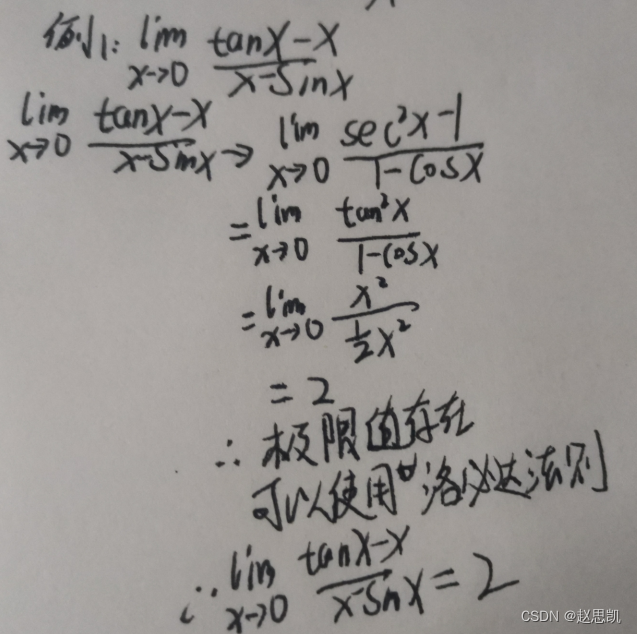 例1: lim x→0 (tanx-x)/(x-sinx)
lim x→0 (tanx-x)/(x-sinx) → lim x→0 (sec²x-1)/(1-cosx)
= lim x→0 tan²x/(1-cosx)
= lim x→0 x²/(½x²)
= 2
∴ 极限值存在
可以使用“洛必达法则
∴ lim x→0 (tanx-x)/(x-sinx) = 2
CSDN @赵思凯